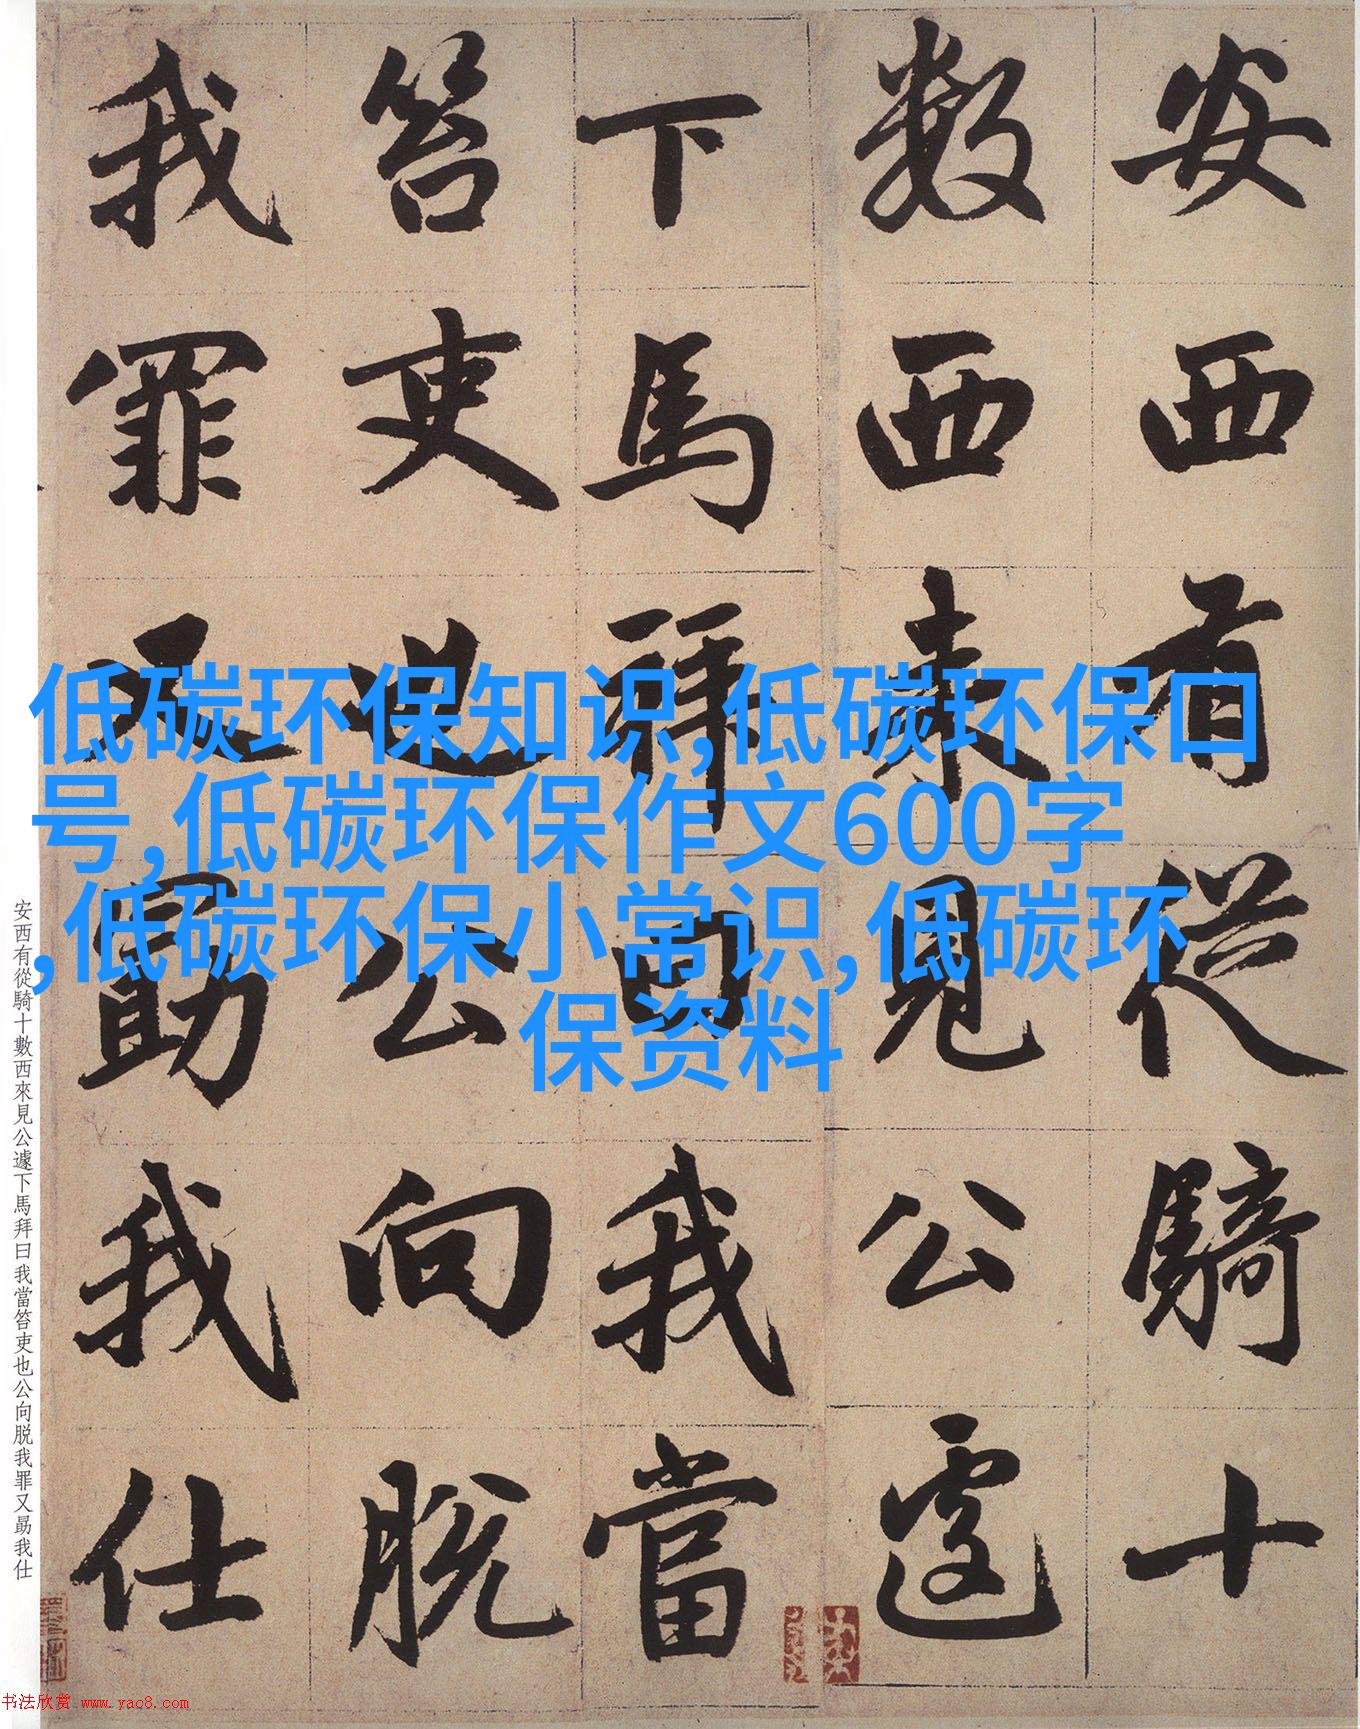 安西有從騎十
数西来見公遽
下馬拜曰我當
笞吏也公向脱
我罪又勗我仕
低碳环保知识,低碳环保口
号,低碳环保作文600字
,低碳环保小常识,低碳环
保资料
安西有從騎十數西來見公遽下馬拜曰我當笞吏也公向脱我罪又勗我仕
书法欣赏 www.yac8.com